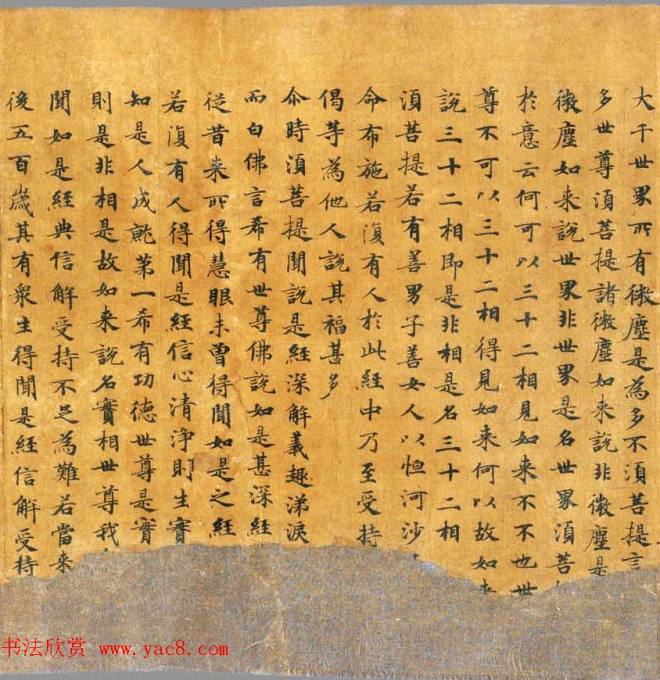 大千世界所有微塵是為多不湏菩提言
多世尊湏菩提諸微塵如来說非微塵是
微塵如来說世界非世界是名世界湏菩
於意云何可以三十二相見如来不不也世
尊不可以三十二相得見如来何以故如来
說三十二相即是非相是名三十二相
湏菩提若有善男子善女人以恒河沙
命布施若復有人於此經中乃至受持
偈等為他人說其福甚多
尒時湏菩提聞說是經深解義趣涕淚
而白佛言希有世尊佛說如是甚深經
從昔来所得慧眼未曾得聞如是之經
若復有人得聞是經信心清淨則生實
知是人成就第一希有功德世尊是實
則是非相是故如来說名實相世尊我
聞如是經典信解受持不足為難若當来
後五百歲其有衆生得聞是經信解受持
书法欣赏 www.yac8.com